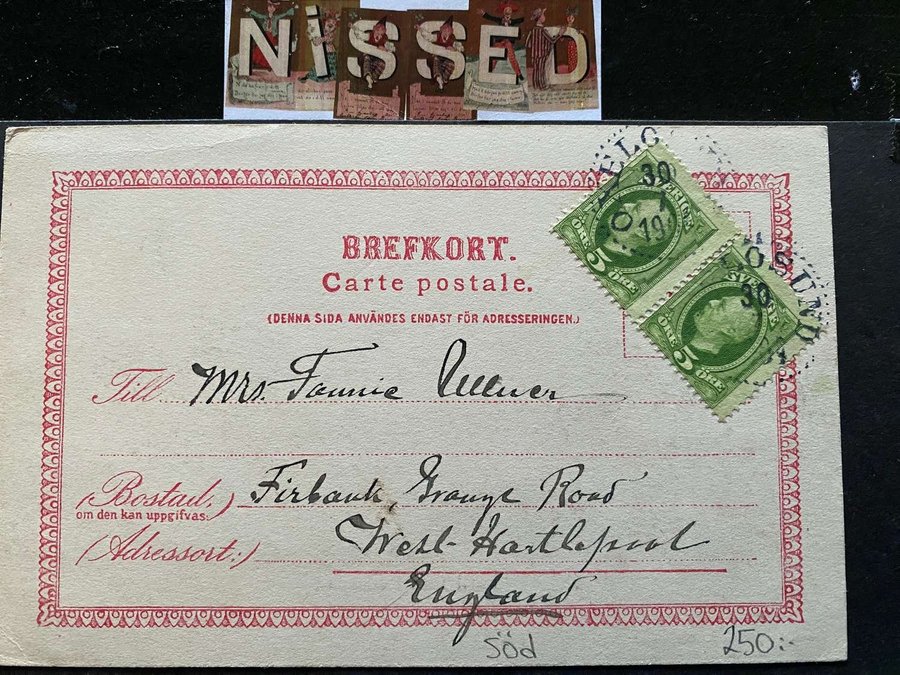 NISSED
BREFKORT.
Carte postale.
(DENNA SIDA ANVÄNDES ENDAST FÖR ADRESSERINGEN.)
30
1
19
SVERIGE
5 ÖRE
ÖSUND
30
5 ÖRE
Till Mrs. Fannie Ullner
(Bostad.) Firbank Grange Road
om den kan uppgifvas:
(Adressort:) West-Hartlepool
England
Söd
250:-